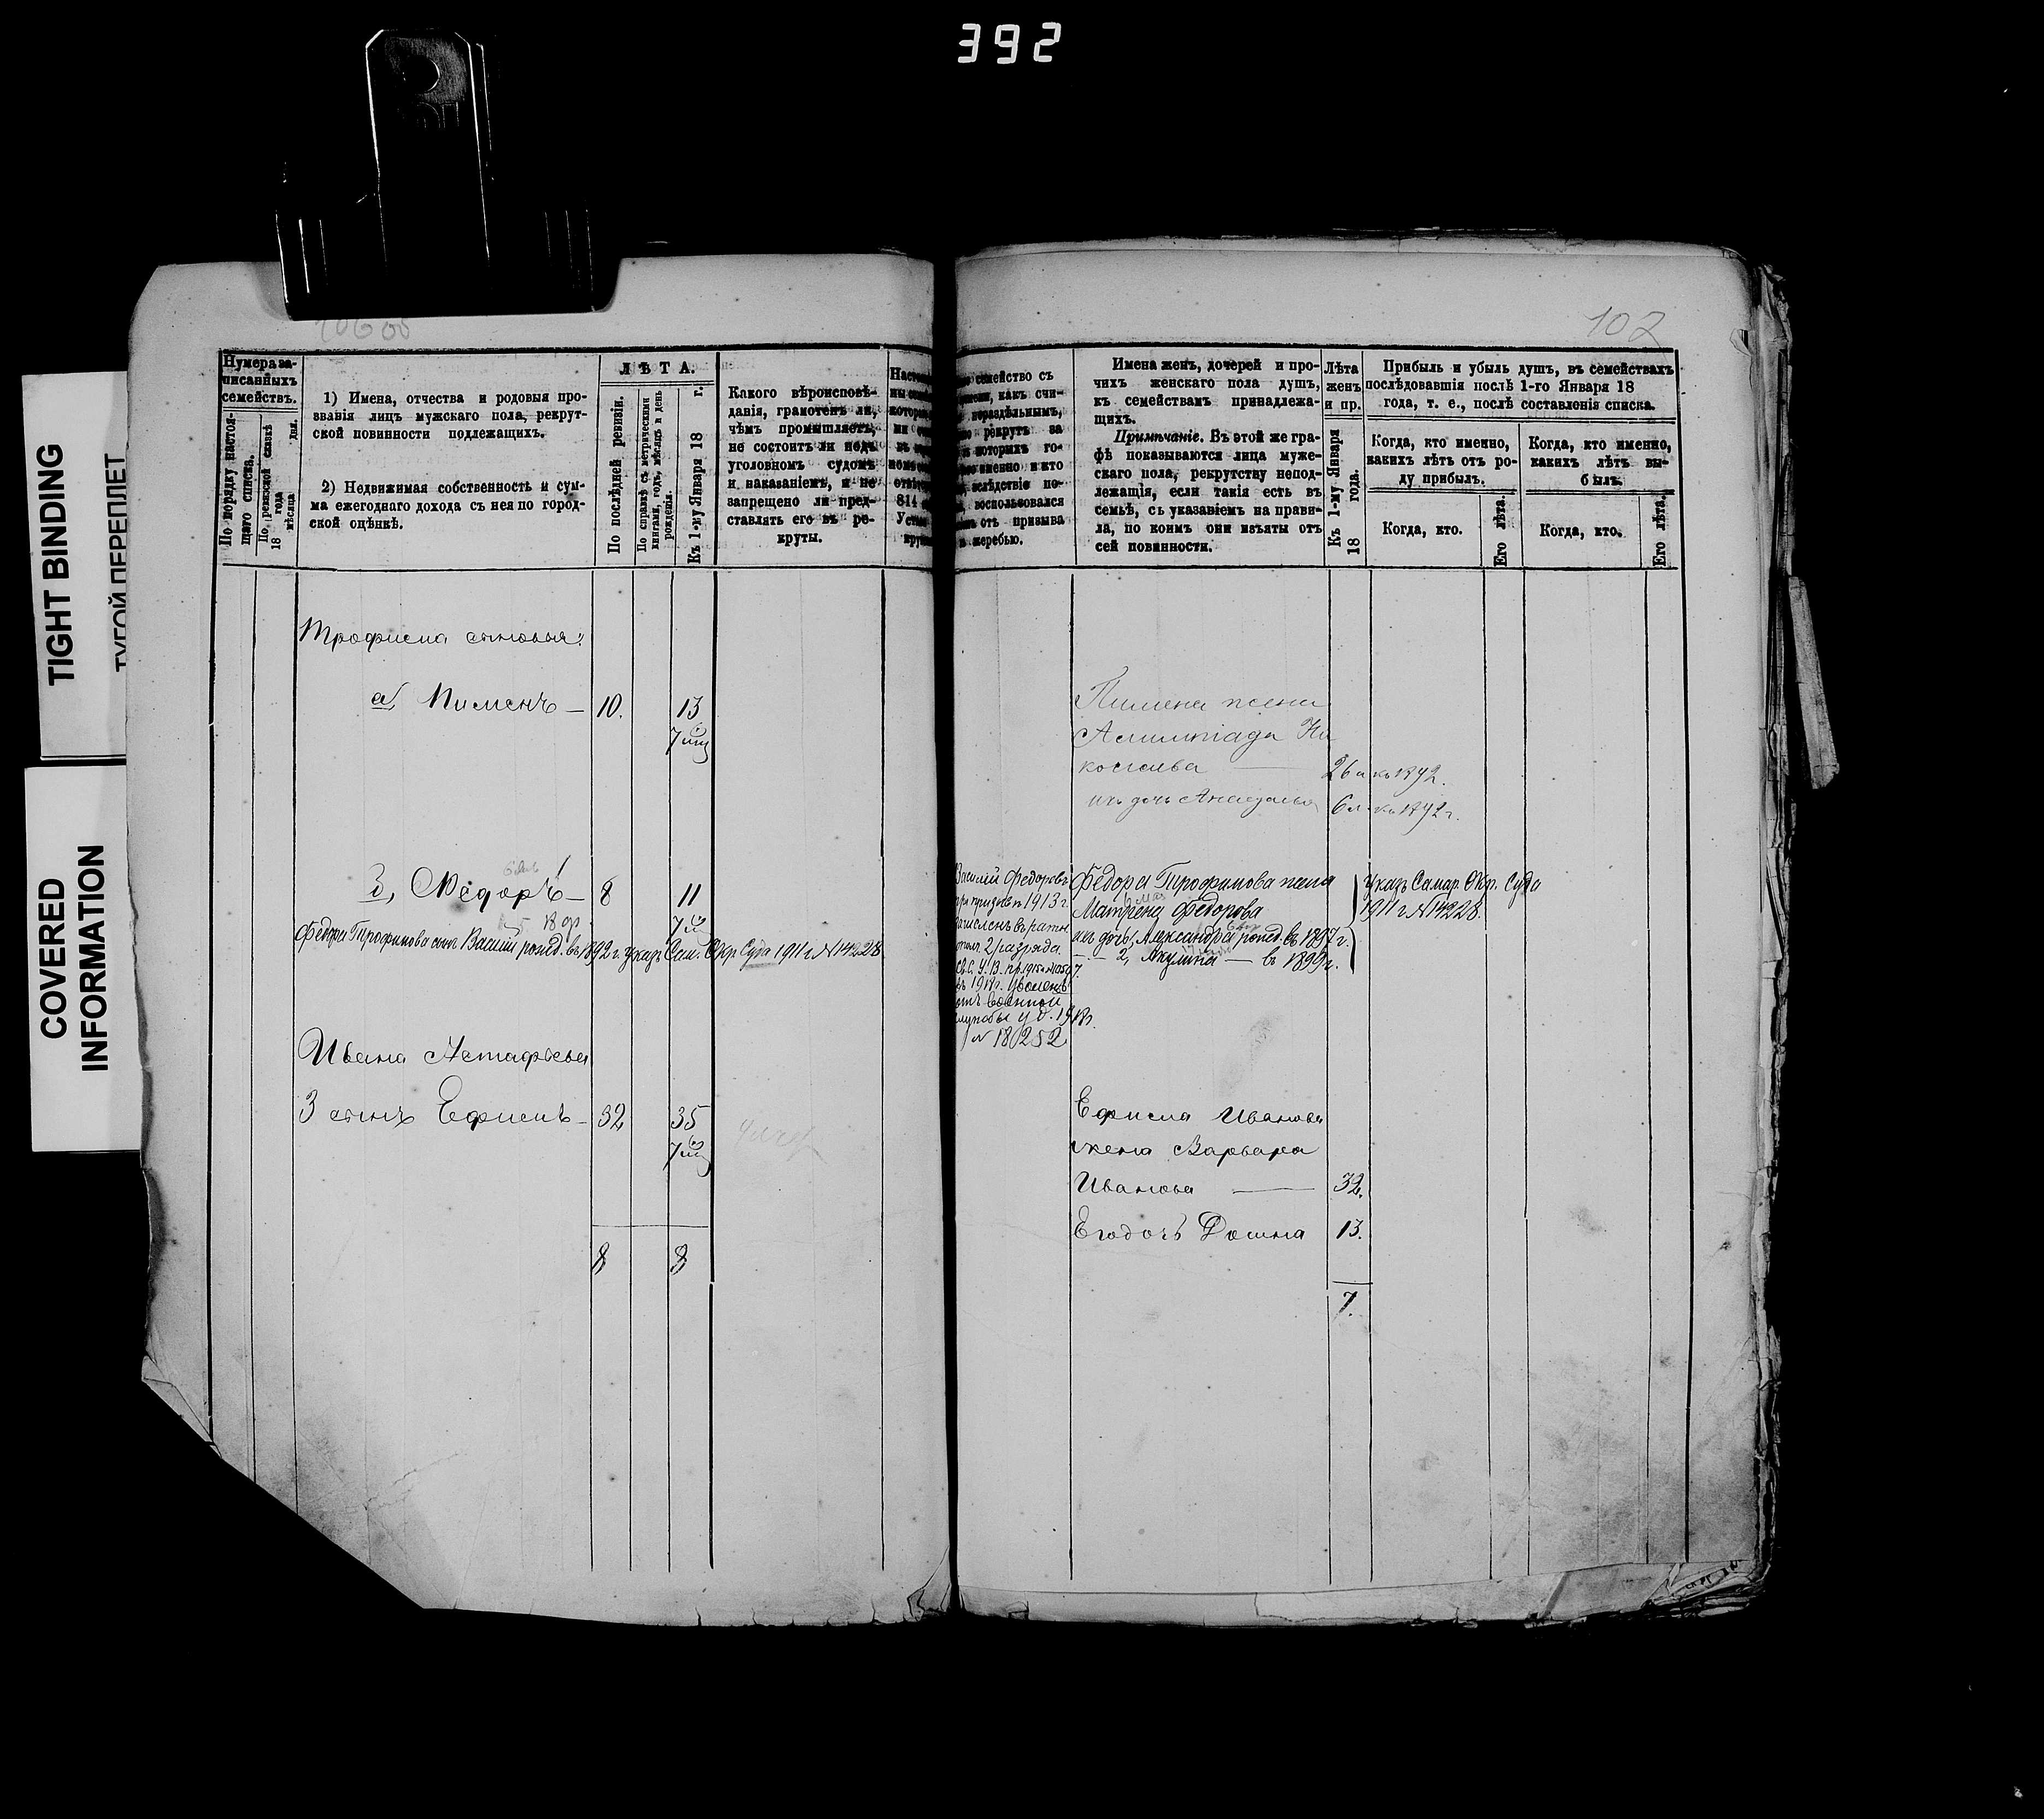 392
102
TIGHT BINDING
ТУГОЙ ПЕРЕПЛЕТ
COVERED
INFORMATION
Нумера за-
писанныхъ
семействъ.
По порядку настоя-
щаго списка.
По ревизской сказкѣ
18 года
мѣсяца дня.
1) Имена, отчества и родовыя про-
званія лицъ мужскаго пола, рекрут-
ской повинности подлежащихъ.
2) Недвижимая собственность и сум-
ма ежегоднаго дохода съ нея по город-
ской оцѣнкѣ.
ЛѢТА.
По послѣдней ревизіи.
По справкѣ съ метрическими
книгами, годъ, мѣсяцъ и день
рожденія.
Къ 1-му Января 18 г.
Какого вѣроисповѣ-
данія, грамотенъ ли,
чѣмъ промышляетъ,
не состоитъ ли подъ
уголовномъ судомъ
и наказаніемъ, и не
запрещено ли пред-
ставлять его въ ре-
круты.
семейство съ
какъ счи-
нераздѣльнымъ,
рекрутъ за
которыхъ го-
именно и кто
вслѣдствіе по-
воспользовался
отъ призыва
жеребью.
Имена женъ, дочерей и про-
чихъ женскаго пола душъ,
къ семействамъ принадлежа-
щихъ.
Примѣчаніе. Въ этой же гра-
фѣ показываются лица муже-
скаго пола, рекрутству непод-
лежащія, если такія есть въ
семьѣ, съ указаніемъ на прави-
ла, по коимъ они изъяты отъ
сей повинности.
Лѣта
женъ
и пр.
Къ 1-му Января
18 года.
Прибыль и убыль душъ, въ семействахъ
послѣдовавшія послѣ 1-го Января 18
года, т. е., послѣ составленія списка.
Когда, кто именно,
какихъ лѣтъ отъ ро-
ду прибылъ.
Когда, кто.
Его лѣта.
Когда, кто именно,
какихъ лѣтъ вы-
былъ.
Когда, кто.
Его лѣта.
Трофима сыновья:
а, Пименъ — 10. 13
Пимена жена
Алимпіада Ни
колаева — 26 л къ 1872.
ихъ дочь 6 л. къ 1872 г.
Ѳедоръ — 8 11
Федора Трофимова сынъ Василій рожд. въ 1892 г. указъ Сам. Окр. Суда 1911 г. N 14228
Василій Федоровъ
при призывѣ 1913 г.
зачисленъ въ ратн.
2 разряда
Уволенъ
военной
службы
N 180252
Федора Трофимова жена
Матрена Федорова
ихъ дочь, Александра рожд. въ 1897 г.
2, Акулина — въ 1899 г.
Указъ Самар. Окр. Суда
1911 г N 14228.
Ивана Астафьева
3 сынъ Ефимъ — 32 35
Ефима Иванова
жена Варвара
Иванова — 32.
Его дочь Домна 13.
8 8
7.